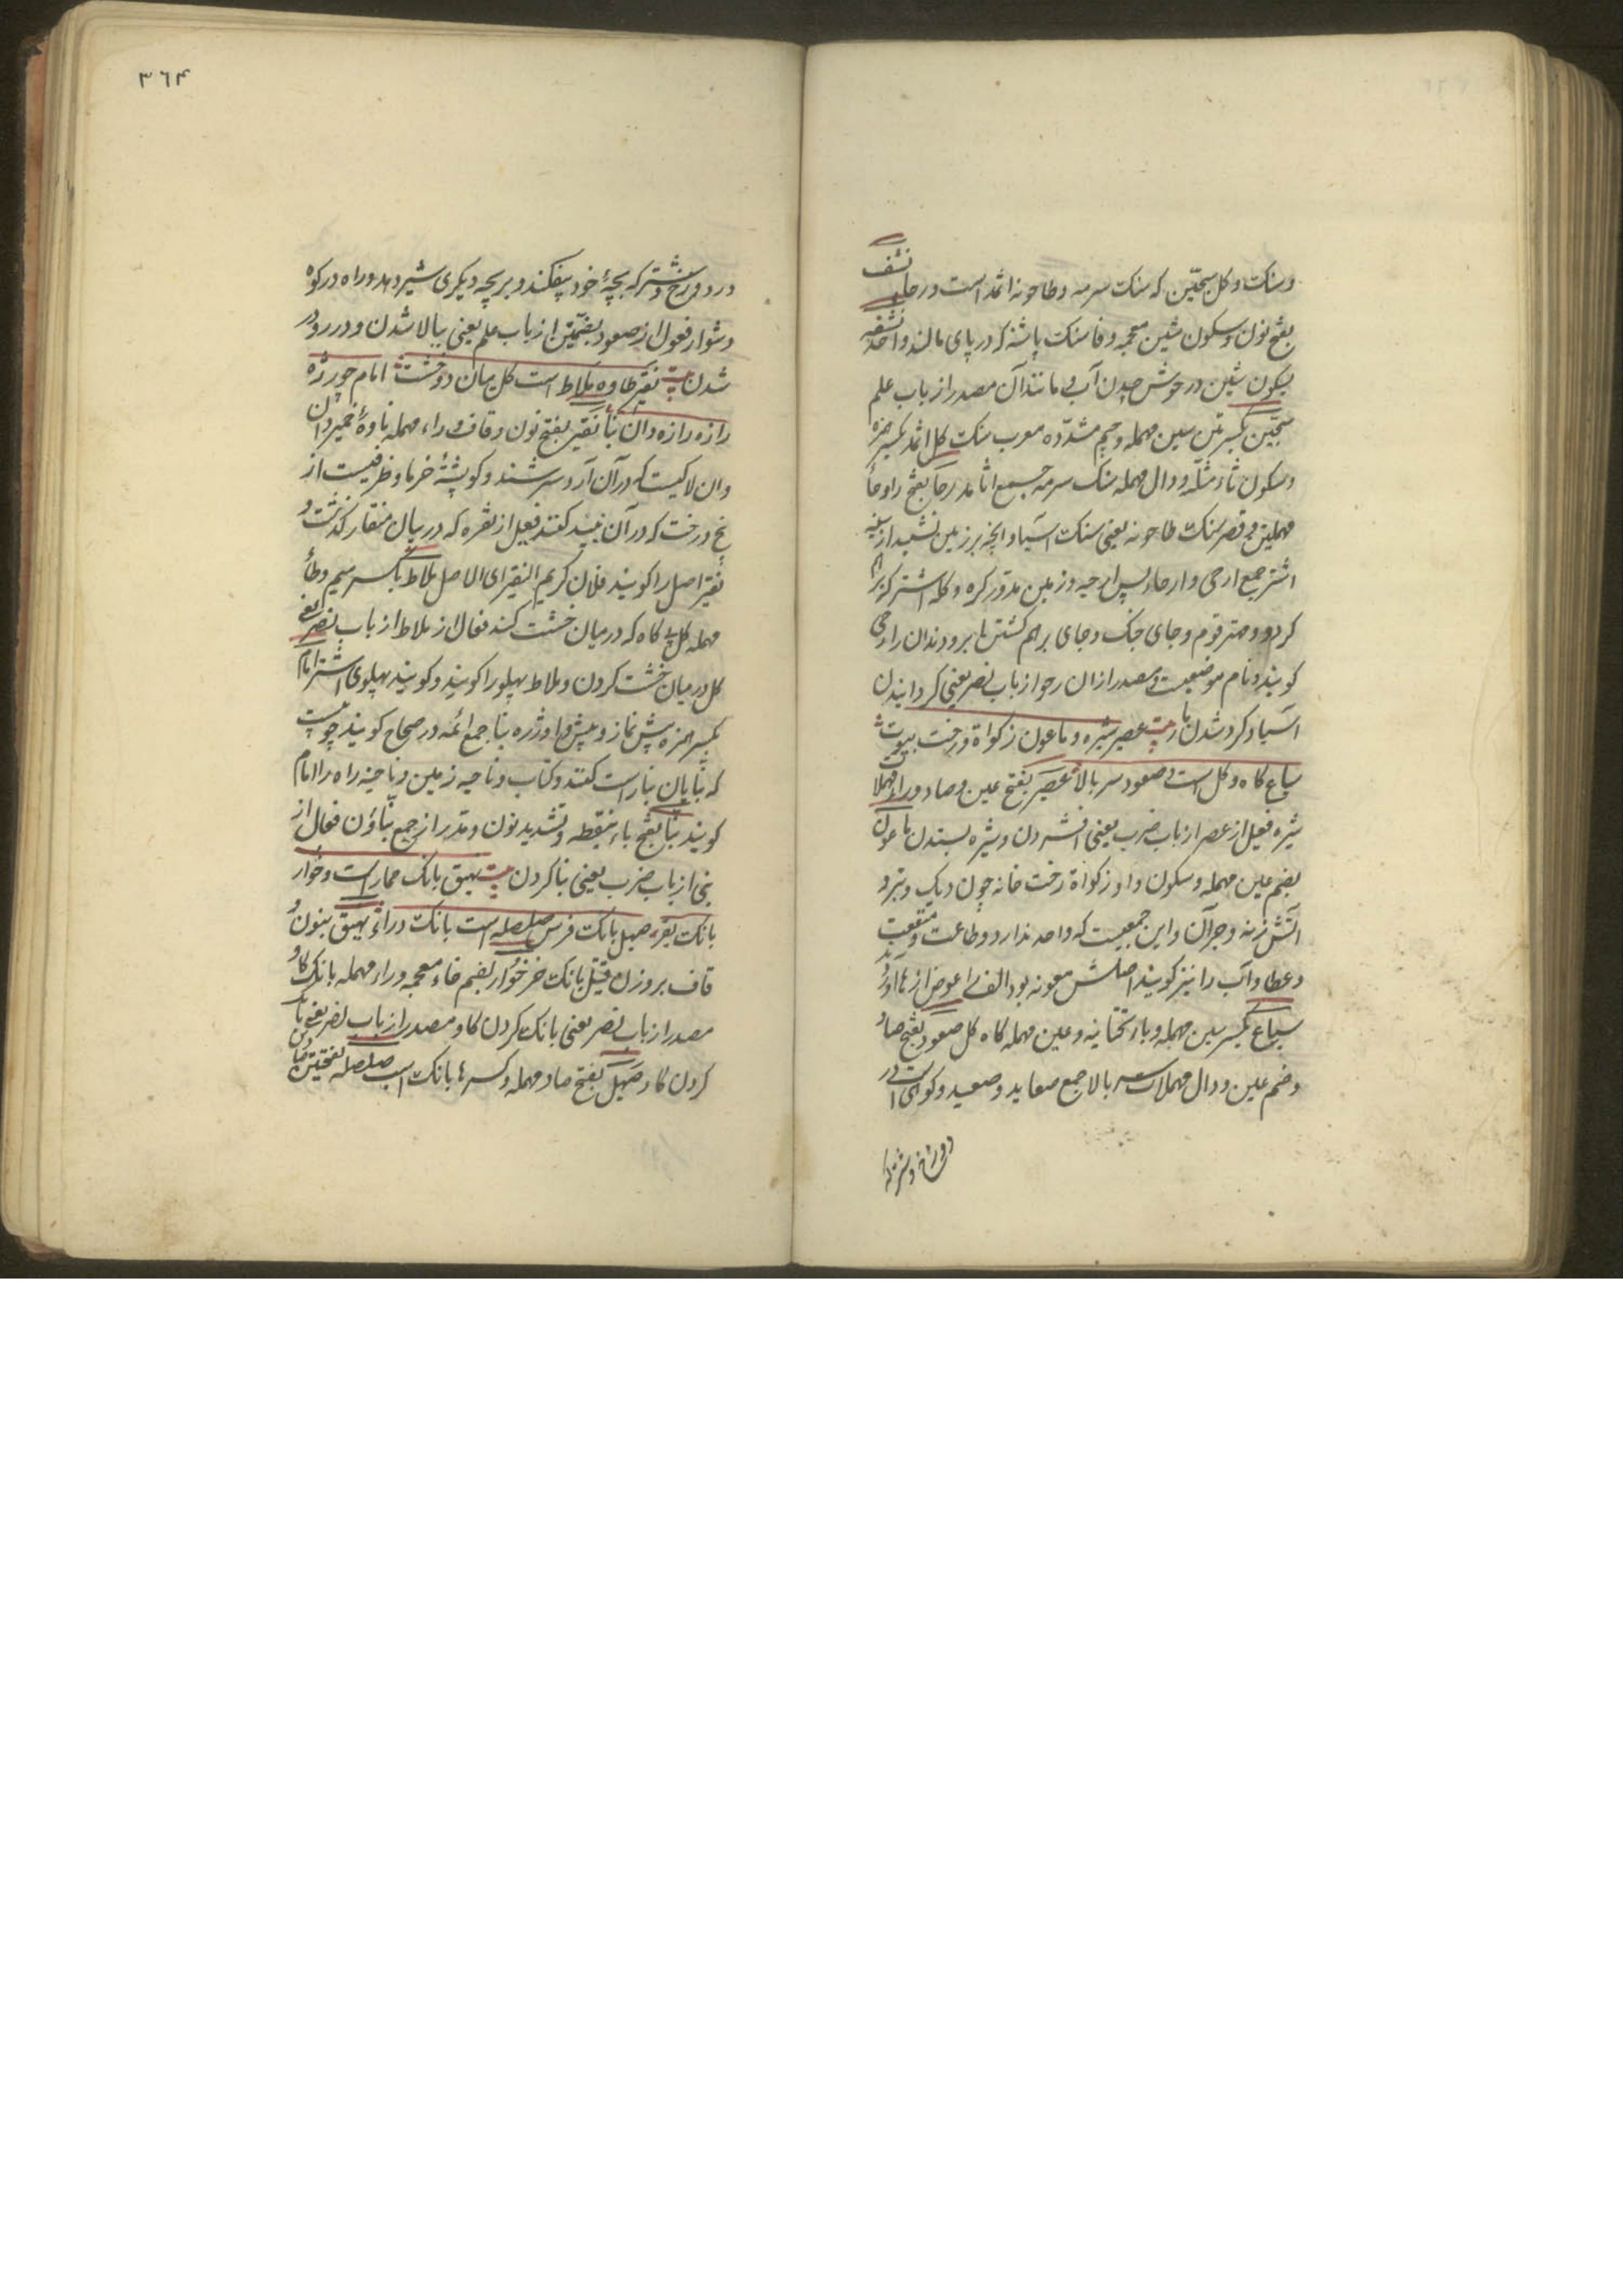 وسنک و کل سجّین که سنک سرمه و طاحونه اثمد است و رحا نشف
بفتح نون و سکون شین معجمه و فا سنک پاشنه که در پای مالند واحد نشفه
بسکون شین در خوش چیدن آب و مانند آن مصدر از باب علم
سجّین بکسرتین سین مهمله و جیم مشدّده معرب سنک کل اثمد بکسر همزه
و سکون ثاء مثلّثه و دال مهمله سنک سرمه جمع اثامد رحا بفتح را و حاء
مهملتین و قصر سنک طاحونه یعنی سنک آسیا و آنچه بر زمین نشیند از سینه
اشتر جمع ارحی و ارحاء و زمین مدور کره و کله اشتر که
کرد و مهتر قوم و جای جنک و جای برهم کشتن ابر و دندان را رحی
کویند و نام موضعیست و مصدر ازان رحو از باب نصر یعنی کردانیدن
آسیا و کرد شدن مار عصیر شیره و ماعون زکوة و رخت بیوت
سیاع کاه و کل است و صعود سر بالا عصیر بفتح عین و صاد و راء مهملا
شیره فعیل از عصر از باب ضرب یعنی افشردن و شیره بستدن ماعون
بضم عین مهمله و سکون واو زکوة و رخت خانه چون دیک و تبر و
آتش زنه و جز آن و این جمعیست که واحد ندارد و طاعت و منفعت
و عطا و آب را نیز کویند اصلش معونه بود الف را عوض از ها آورد
سیاع بکسر سین مهمله و یاء تحتانیه و عین مهمله کاه کل صعود بفتح صاد
و ضم عین و دال مهملات سر بالا جمع صعاید و صعید و کوهی است در
دوزخ و شتر که
۳۶۴
در دوزخ و شتر که بچهٔ خود بیفکند و بر بچه دیکری شیر دهد و راه در کوه
دشوار فعول از صعود بضمّتین از باب علم یعنی ببالا شدن و در رود
شدن نقیر طاوه ملاط است کل میان دو خشت امام چو رژه
رازه رازه دان بنا نقیر بفتح نون و قاف و راء مهمله ناوهٔ خمیر و آن
و آن لاکیست که در آن آرد سرشند و کو پشتهٔ خرما و ظرفیست از
بیخ درخت که در آن نبیذ کنند فعیل از نقره که در بیان منقار کذشت و
نقیر اصل را کویند فلان کریم النقیر ای الاصل ملاط بکسر میم و طاء
مهمله کل بی کاه که در میان خشت کنند فعال از ملاط از باب نصر یعنی
کل در میان خشت کردن و ملاط پهلو را کویند و کویند پهلوی اشتر امام
بکسر همزه پیش نماز و پیش رو و رژه بنا جمع ائمه در صحاح کویند چوبیست
که بنا بآن بنا راست کنند و کتاب و ناحیه زمین و ناحیه راه را امام
کویند بنا بفتح باء بنقطه و تشدید نون و مد راز جمع بناؤن فعال از
بنی از باب ضرب یعنی بنا کردن نهیق بانک حمار است و خوار
بانک بقر صهیل بانک فرس صلصله است بانک درا نهیق بنون و
قاف بر وزن قتیل بانک خر خوار بضم خاء معجمه و راء مهمله بانک کاو
مصدر از باب نصر یعنی بانک کردن کاو مصدر از باب نصر یعنی بانک
کردن کاو صهیل بفتح صاد مهمله و کسر ها بانک اسب صلصله بفتحتین صاد